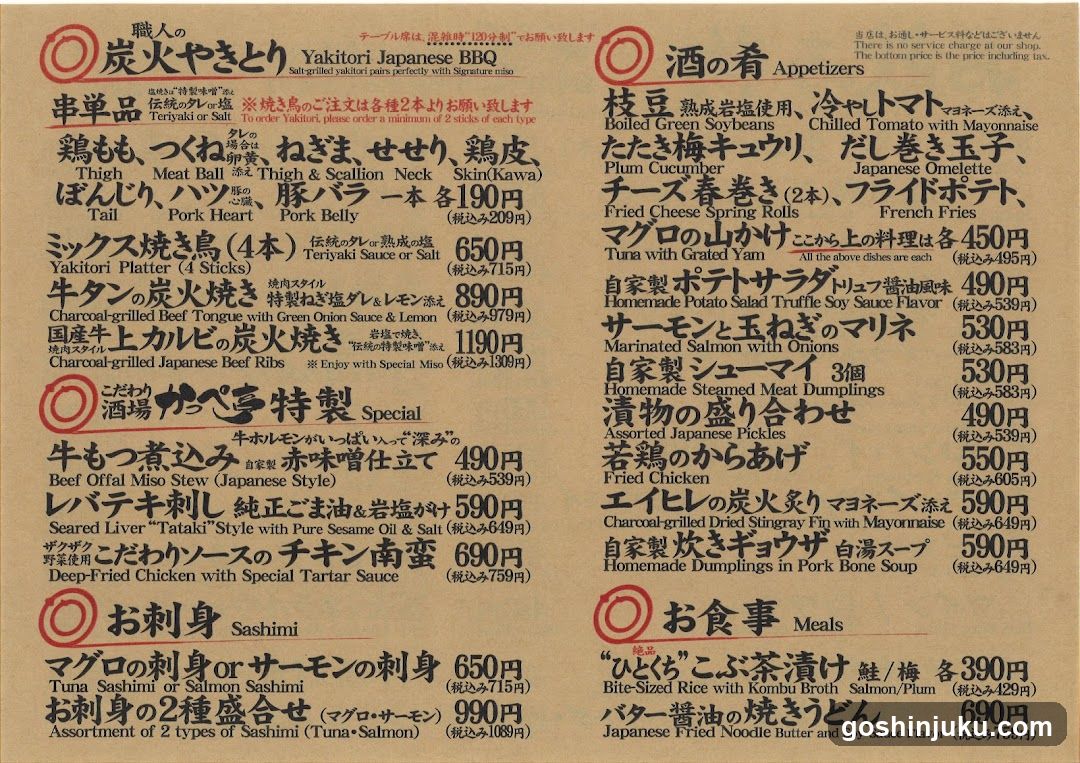 職人の
炭火やきとり Yakitori Japanese BBQ
Salt-grilled yakitori pairs perfectly with Signature miso
テーブル席は、混雑時“120分制”でお願い致します
串単品 塩焼きは“特製味噌”添え
伝統のタレor塩
Teriyaki or Salt
※焼き鳥のご注文は各種2本よりお願い致します
To order Yakitori, please order a minimum of 2 sticks of each type
鶏もも、つくね タレの場合は卵黄添え、ねぎま、せせり、鶏皮、
Thigh Meat Ball Thigh & Scallion Neck Skin(Kawa)
ぼんじり、ハツ 豚の心臓、豚バラ 一本 各190円
Tail Pork Heart Pork Belly (税込み209円)
ミックス焼き鳥(4本) 伝統のタレor熟成の塩 650円
Yakitori Platter (4 Sticks) Teriyaki Sauce or Salt (税込み715円)
牛タンの炭火焼き 焼肉スタイル 特製ねぎ塩ダレ&レモン添え 890円
Charcoal-grilled Beef Tongue with Green Onion Sauce & Lemon (税込み979円)
国産牛 焼肉スタイル 上カルビの炭火焼き 岩塩で焼き、“伝統の特製味噌”添え 1190円
Charcoal-grilled Japanese Beef Ribs ※Enjoy with Special Miso (税込み1309円)
こだわり
酒場 かっぺ亭 特製 Special
牛ホルモンがいっぱい入って“深み”の
牛もつ煮込み 自家製 赤味噌仕立て 490円
Beef Offal Miso Stew (Japanese Style) (税込み539円)
レバテキ刺し 純正ごま油&岩塩がけ 590円
Seared Liver “Tataki” Style with Pure Sesame Oil & Salt (税込み649円)
ザクザク野菜使用 こだわりソースの チキン南蛮 690円
Deep-Fried Chicken with Special Tartar Sauce (税込み759円)
お刺身 Sashimi
マグロの刺身or サーモンの刺身 650円
Tuna Sashimi or Salmon Sashimi (税込み715円)
お刺身の2種盛合せ (マグロ・サーモン) 990円
Assortment of 2 types of Sashimi (Tuna・Salmon) (税込み1089円)
酒の肴 Appetizers
当店は、お通し・サービス料などはございません
There is no service charge at our shop.
The bottom price is the price including tax.
枝豆 熟成岩塩使用、冷やしトマト マヨネーズ添え、
Boiled Green Soybeans Chilled Tomato with Mayonnaise
たたき梅キュウリ、 だし巻き玉子、
Plum Cucumber Japanese Omelette
チーズ春巻き(2本)、フライドポテト、
Fried Cheese Spring Rolls French Fries
マグロの山かけ ここから上の料理は各 450円
Tuna with Grated Yam All the above dishes are each (税込み495円)
自家製 ポテトサラダ トリュフ醤油風味 490円
Homemade Potato Salad Truffle Soy Sauce Flavor (税込み539円)
サーモンと玉ねぎのマリネ 530円
Marinated Salmon with Onions (税込み583円)
自家製 シューマイ 3個 530円
Homemade Steamed Meat Dumplings (税込み583円)
漬物の盛り合わせ 490円
Assorted Japanese Pickles (税込み539円)
若鶏のからあげ 550円
Fried Chicken (税込み605円)
エイヒレの炭火炙り マヨネーズ添え 590円
Charcoal-grilled Dried Stingray Fin with Mayonnaise (税込み649円)
自家製 炊きギョウザ 白湯スープ 590円
Homemade Dumplings in Pork Bone Soup (税込み649円)
お食事 Meals
絶品
“ひとくち”こぶ茶漬け 鮭/梅 各390円
Bite-Sized Rice with Kombu Broth Salmon/Plum (税込み429円)
バター醤油の焼きうどん 690円
Japanese Fried Noodle Butter and
goshinjuku.com